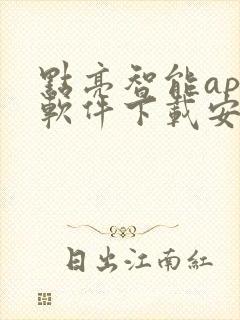 點亮智能ap
軟件下載安
日出江南紅